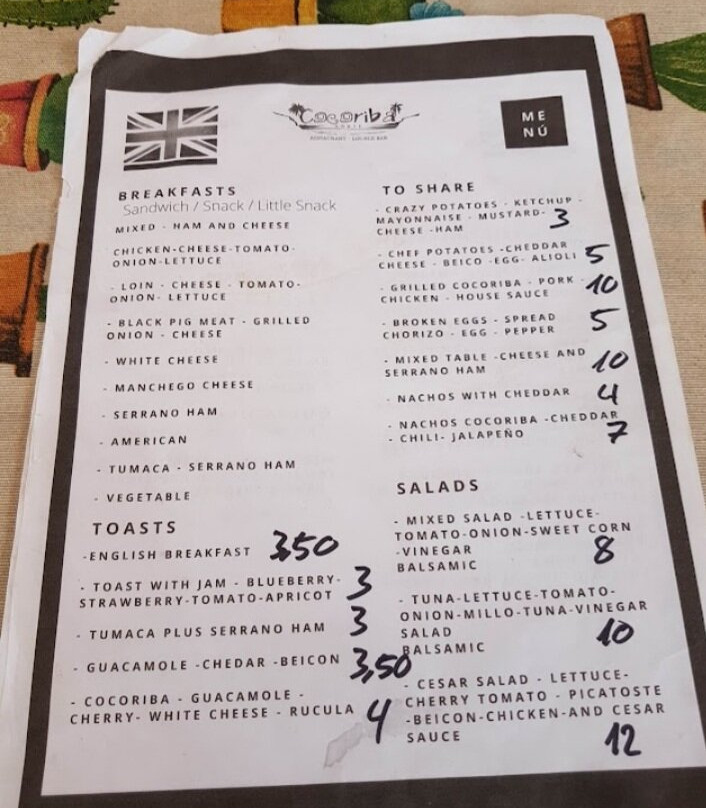 Cocoriba
RESTAURANT - LOUNGE BAR
ME
NÚ
BREAKFASTS
Sandwich / Snack / Little Snack
MIXED - HAM AND CHEESE
CHICKEN-CHEESE-TOMATO-
ONION-LETTUCE
- LOIN - CHEESE - TOMATO-
ONION- LETTUCE
- BLACK PIG MEAT - GRILLED
ONION - CHEESE
- WHITE CHEESE
- MANCHEGO CHEESE
- SERRANO HAM
- AMERICAN
- TUMACA - SERRANO HAM
- VEGETABLE
TOASTS
-ENGLISH BREAKFAST 3,50
- TOAST WITH JAM - BLUEBERRY-
STRAWBERRY-TOMATO-APRICOT 3
- TUMACA PLUS SERRANO HAM 3
- GUACAMOLE -CHEDAR -BEICON 3,50
- COCORIBA - GUACAMOLE -
CHERRY- WHITE CHEESE - RUCULA 4
TO SHARE
- CRAZY POTATOES - KETCHUP -
MAYONNAISE - MUSTARD-
CHEESE -HAM 3
- CHEF POTATOES -CHEDDAR
CHEESE - BEICO -EGG- ALIOLI 5
- GRILLED COCORIBA - PORK -
CHICKEN - HOUSE SAUCE 10
- BROKEN EGGS - SPREAD
CHORIZO - EGG - PEPPER 5
- MIXED TABLE -CHEESE AND
SERRANO HAM 10
- NACHOS WITH CHEDDAR 4
- NACHOS COCORIBA -CHEDDAR
- CHILI- JALAPEÑO 7
SALADS
- MIXED SALAD -LETTUCE-
TOMATO-ONION-SWEET CORN
-VINEGAR
BALSAMIC 8
- TUNA-LETTUCE-TOMATO-
ONION-MILLO-TUNA-VINEGAR
SALAD 10
BALSAMIC
- CESAR SALAD - LETTUCE-
CHERRY TOMATO - PICATOSTE
-BEICON-CHICKEN-AND CESAR
SAUCE 12